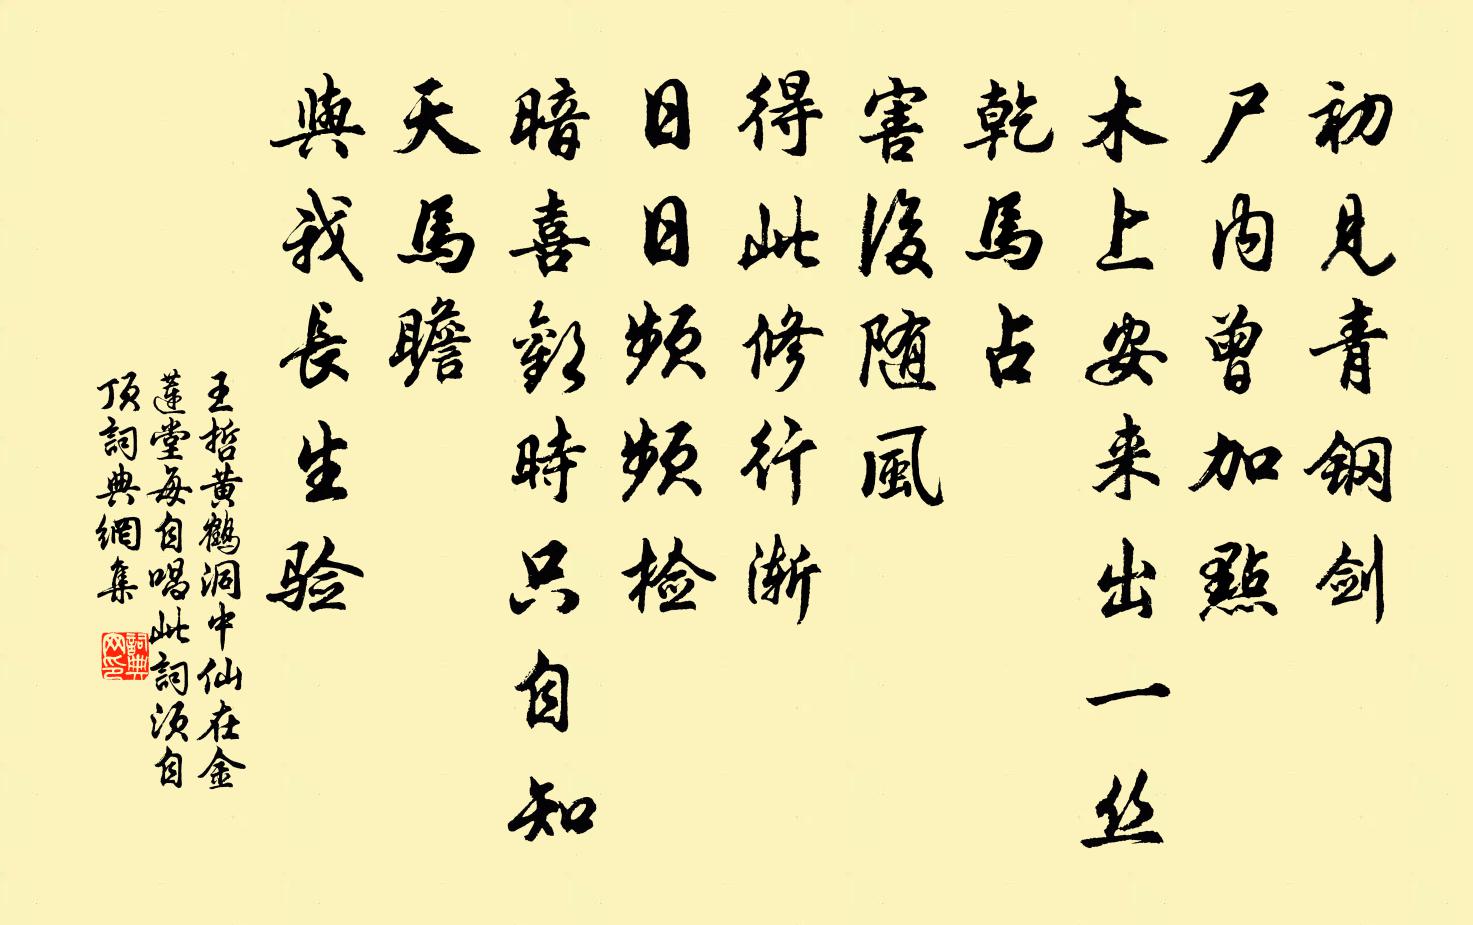 初見青鋼劍
尸內曾加點
木上安来出一丝
乾馬占
害後随風
得此修行漸
日日頻頻檢
暗喜歡時只自知
天馬瞻
與我長生验
王哲黃鶴洞中仙在金
蓮堂每自唱此詞須自
頂詞典網集
詞典网印